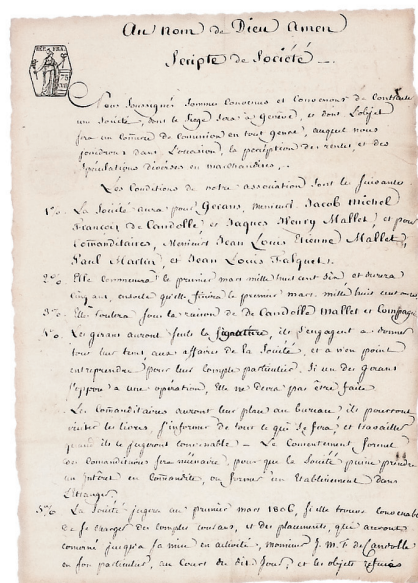 Au nom de Dieu amen
Scripte de Société
REP. FRA.
75
Nous soussignés sommes convenus et convenons de contracter
une société, dont le siege sera à Genève, et dont l'objet
sera un comerce de comission en tout genre, auquel nous
joindrons dans l'occasion, la perception des rentes, et des
spéculations diverses en marchandises.
Les Conditions de notre association sont les suivantes
1°. La Société aura pour Gerans, messieurs Jacob Michel
François de Candolle et Jaques Henry Mallet, et pour
comanditaires, Messieurs Jean Louis Etienne Mallet,
Paul Martin, et Jean Louis Falquet.
2°. Elle commencera le premier mars mille huit cent six, et durera
cinq ans, ensorte qu'elle finira le premier mars, mille huit cent onze
3°. Elle roulera sous la raison de De Candolle Mallet et Compagnie
Les gerans auront seuls la signature, ils s'engagent a donner
tout leur tems, aux affaires de la Société, et a n'en point
entreprendre pour leur compte particulier. Si un des Gerans
s'oppose a une opération, elle ne devra pas être faite
Les Comanditaires auront leur place au bureau, ils pourront
visiter les livres, s'informer de tout ce qui se fera, et travailler
quand ils le jugeront convenable - Le Consentement formel
des comanditaires sera nécessaire, pour que la Société puisse prendre
un intérêt en comandite, ou former un Etablissement dans
l'étranger.
La Société jugera au premier mars 1806, si elle trouve convenable
de se charger des comptes courans, et des placements, que auront
concerné jusqu'à sa mise en activité, monsieur J. M. F. de Candolle
en son particulier, au Cours du dit Jour, et les objets refusés